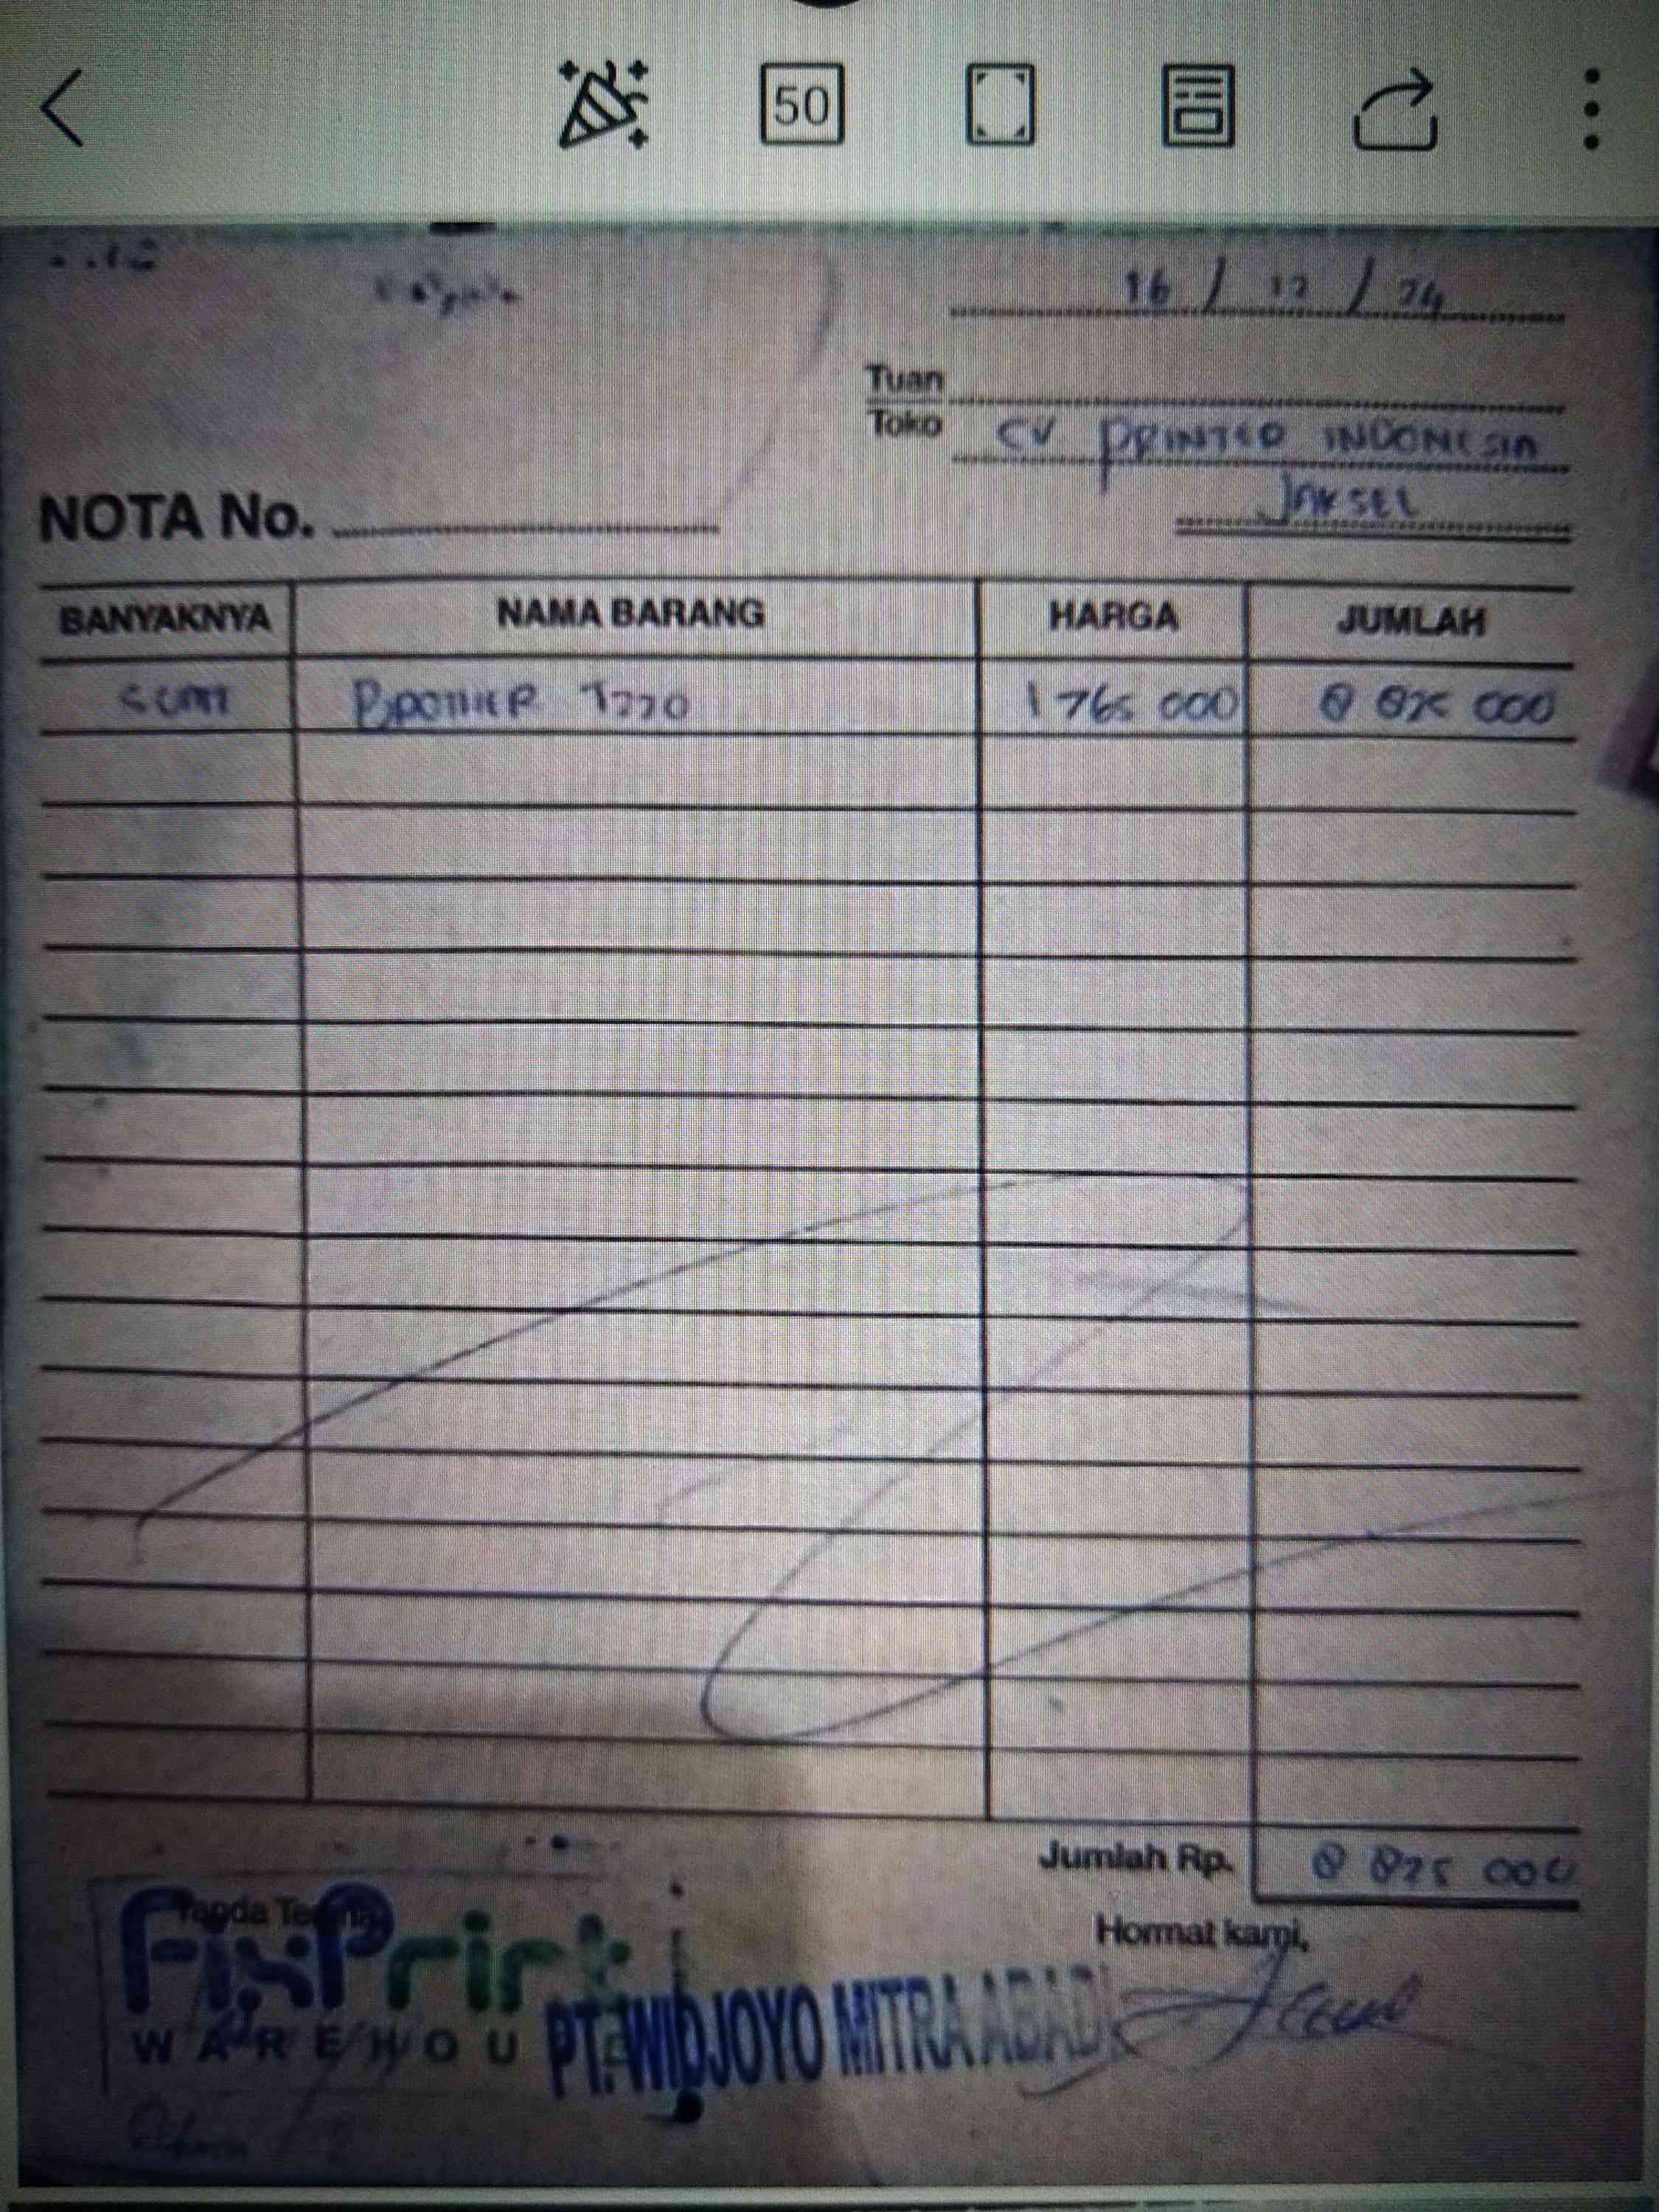 50
16 / 12 / 24
Tuan
Toko CV PRINTED INDONESIA
JAKSEL
NOTA No.
BANYAKNYA NAMA BARANG HARGA JUMLAH
5 Unit BROTHER T220 1 765 000 8 825 000
Jumlah Rp. 8 825 000
Tanda Terima
Hormat kami,
FixPrint
WAREHOUSE
PT. WIDJOYO MITRA ABADI